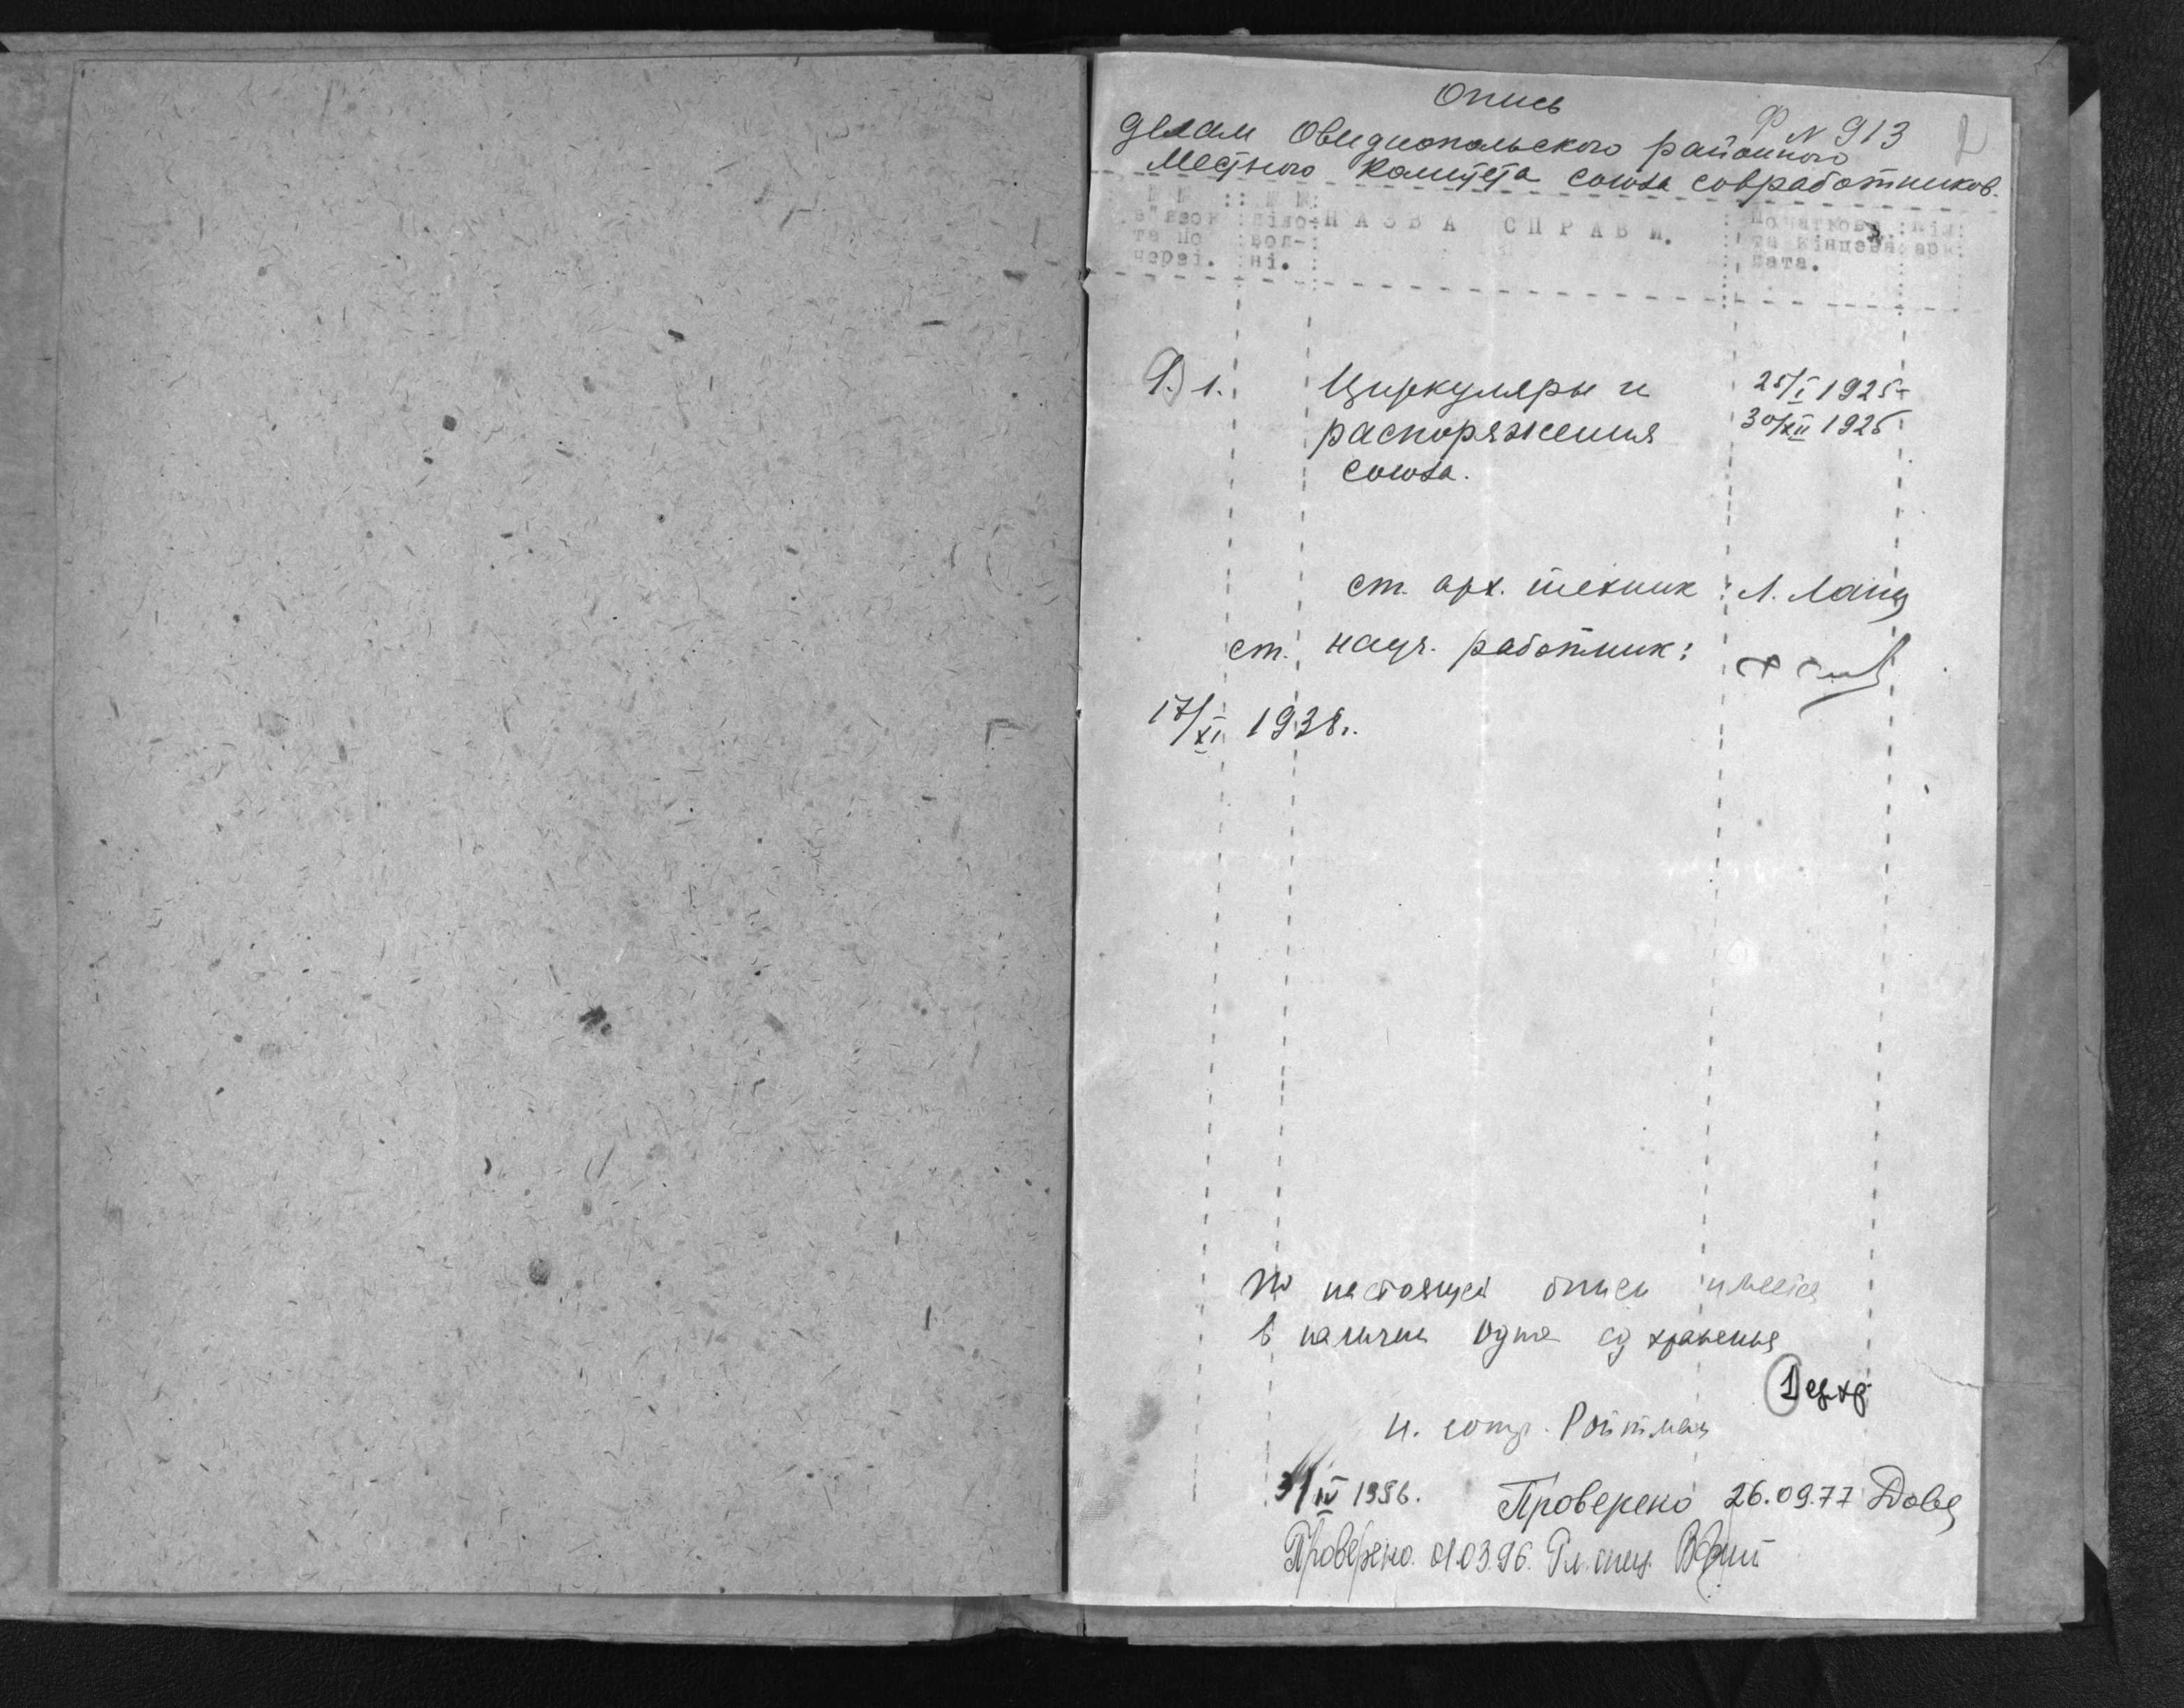 Опись
Ф N 913
2
делам Овидиопольского районного
местного комитета союза совработников.
№ № : : № № :
в"язок : діло- : НАЗВА СПРАВИ. : Початкова : Кім:
та по : вод- : та кінцева : арк:
черзі. : ні. : дата.
1. 1. Циркуляры и 25/I 1925-
распоряжения 30/XII 1925
союза.
ст. арх. техник : Л. Ланц
ст. науч. работник:
17/XI 1938г.
По настоящей описи имеется
в наличии одна ед хранения
1 ед. хр.
н. сотр. Ройтман
3/IV 1956.
Проверено 26.09.77
Проверено 01.03.96. Гл. спец.